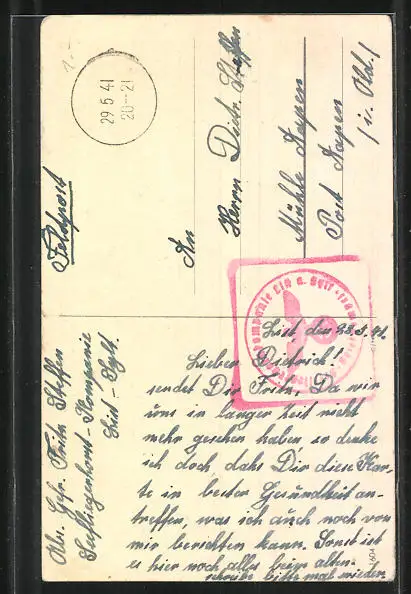 Feldpost
29 5 41
20-21
An
Herrn Dietr. Steffen
Mühle Japen
Post Japen
(i. Old.)
Abs. Gefr. Fritz Steffen
Seefliegerhorst-Kompanie
List - Sylt.
List, den 28.5.41.
Lieber Dietrich!
sendet Dir Fritz. Da wir
uns in langer Zeit nicht
mehr gesehen haben so denke
ich doch dahs Dir diese Kar-
te in bester Gesundheit an-
treffen, was ich auch noch von
mir berichten kann. Sonst ist
es hier noch alles beim alten.
schreibe bitte mal wieder.